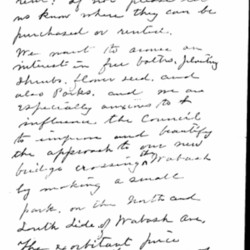 us know where they can be
purchased or rented.
We want to arouse an
interest in free baths, planting
shrubs, flower seed, and
also Parks. and we are
especially anxious to
influence, the Council
to improve and beautify
the approach to our new
bridge crossing the Wabash
by making a small
park, on the North and
South side of Wabash Ave.
The exorbitant price